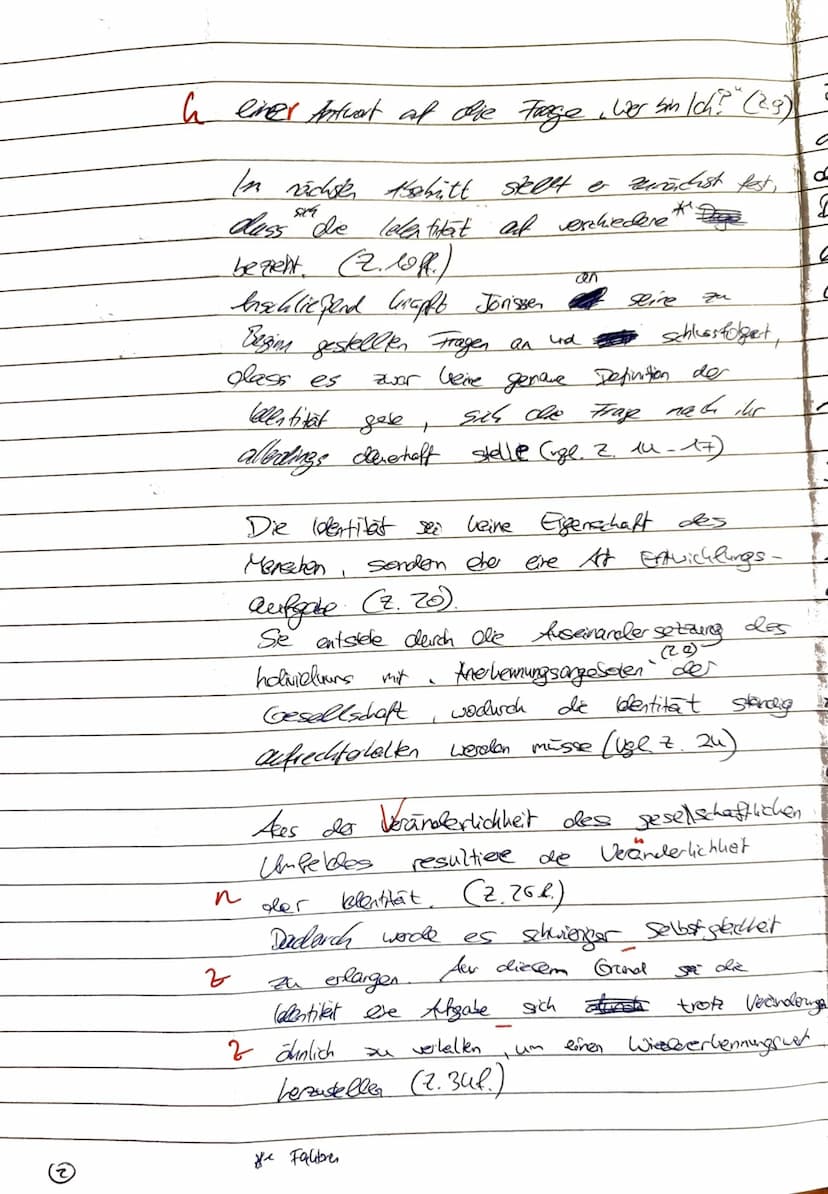 h einer Antwort auf die Frage „Wer bin Ich?" (Z.9)
Im nächsten Abschnitt stellt er zunächst fest,
dass sich die Identität auf verschiedene **
bezieht. (Z. 10ff.)
Anschließend knüpft Jörissen an seine zu
Beginn gestellten Fragen an und schlussfolgert,
dass es zwar keine genaue Definition der
Identität gebe, sich die Frage nach ihr
allerdings dauerhaft stelle (vgl. Z. 14 - 17)
Die Identität sei keine Eigenschaft des
Menschen, sondern eher eine Art Entwicklungs-
aufgabe (Z. 20).
Sie entstehe durch die Auseinandersetzung des
Individuums mit „Anerkennungsangeboten" der
Gesellschaft, wodurch die Identität ständig
aufrechterhalten werden müsse (Vgl. Z. 24)
Aus der Veränderlichkeit des gesellschaftlichen
Umfeldes resultiere die Veränderlichkeit
der Identität. (Z. 26f.)
Dadurch werde es schwieriger Selbstgleichheit
zu erlangen. Aus diesem Grund sei die
Identität eine Aufgabe sich trotz Veränderung
ähnlich zu verhalten, um einen Wiedererkennungswert
herzustellen (Z. 34f.)
②